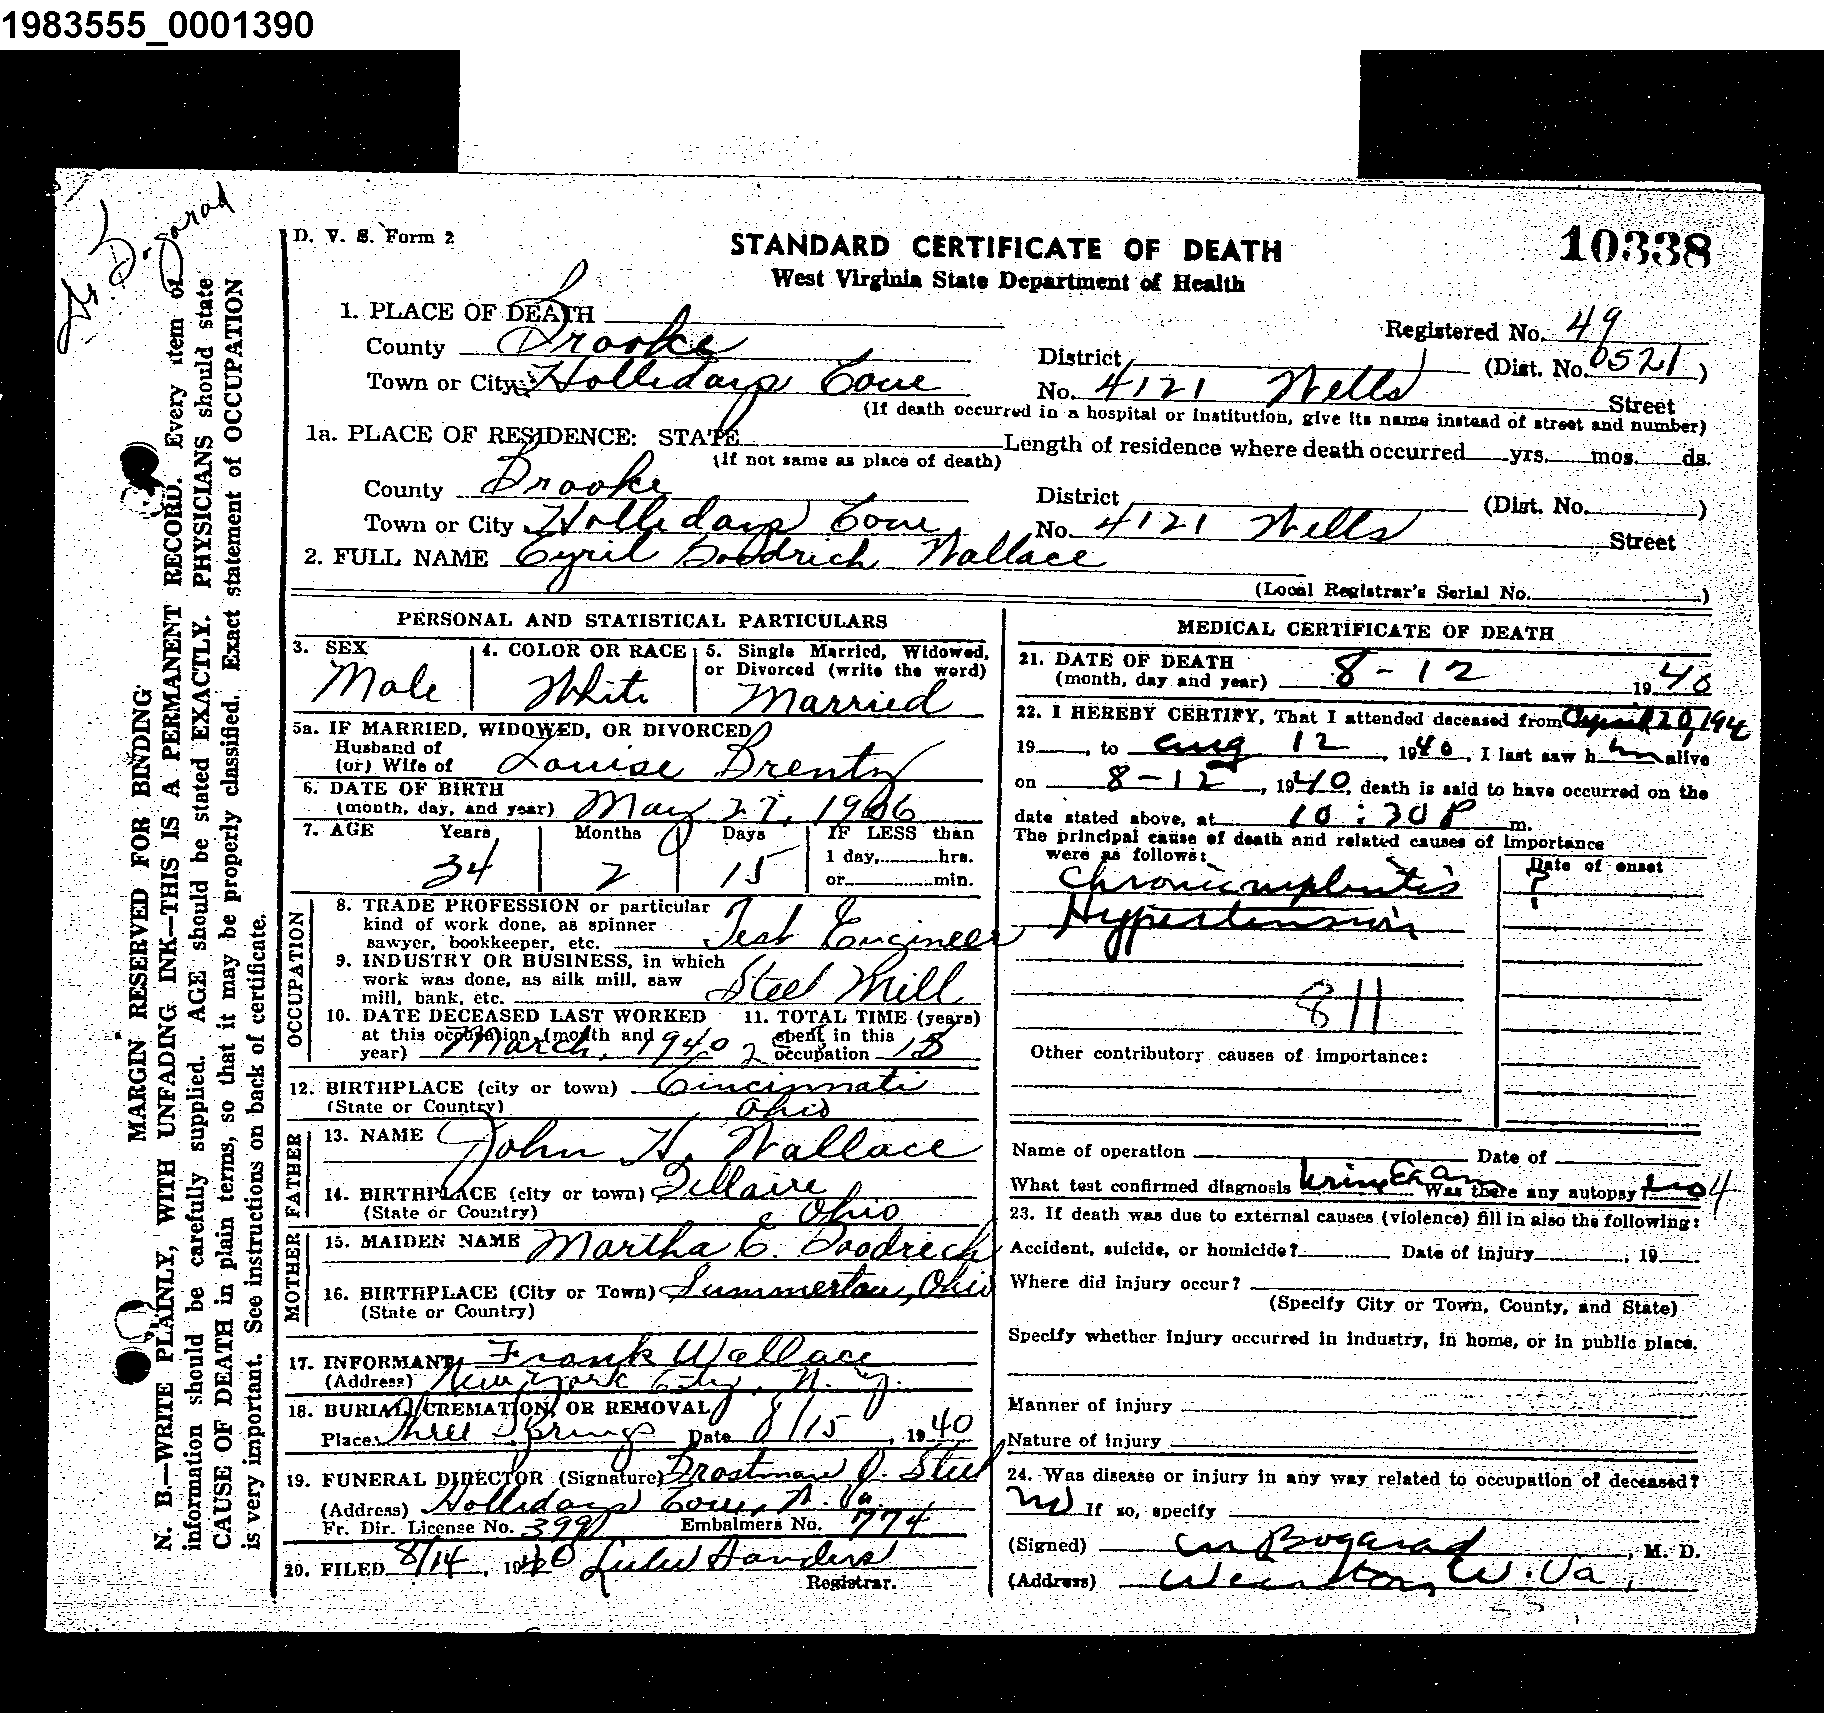 1983555_0001390
D. V. S. Form 2
STANDARD CERTIFICATE OF DEATH
10338
West Virginia State Department of Health
1. PLACE OF DEATH
Registered No. 49
County Brooke
District (Dist. No. 0521)
Town or City Hollidays Cove
No. 4121 Wells Street
(If death occurred in a hospital or institution, give its name instead of street and number)
1a. PLACE OF RESIDENCE: STATE
Length of residence where death occurred yrs. mos. ds.
(If not same as place of death)
County Brooke
District (Dist. No. )
Town or City Hollidays Cove
No. 4121 Wells Street
2. FULL NAME Cyril Goodrich Wallace
(Local Registrar's Serial No. )
PERSONAL AND STATISTICAL PARTICULARS
3. SEX
Male
4. COLOR OR RACE
White
5. Single Married, Widowed,
or Divorced (write the word)
Married
5a. IF MARRIED, WIDOWED, OR DIVORCED
Husband of
(or) Wife of Louise Brentz
6. DATE OF BIRTH
(month, day, and year) May 27, 1906
7. AGE Years Months Days IF LESS than
34 2 15
1 day, hrs.
or min.
OCCUPATION
8. TRADE PROFESSION or particular
kind of work done, as spinner
sawyer, bookkeeper, etc. Test Engineer
9. INDUSTRY OR BUSINESS, in which
work was done, as silk mill, saw
mill, bank, etc. Steel Mill
10. DATE DECEASED LAST WORKED
at this occupation (month and
year) March, 1940
11. TOTAL TIME (years)
spent in this
occupation
12. BIRTHPLACE (city or town) Cincinnati
(State or Country) Ohio
FATHER
13. NAME John H. Wallace
14. BIRTHPLACE (city or town) Bellaire
(State or Country) Ohio
MOTHER
15. MAIDEN NAME Martha E. Goodrich
16. BIRTHPLACE (City or Town) Ohio
(State or Country)
17. INFORMANT Frank Wallace
(Address) New York City, N. Y.
18. BURIAL, CREMATION, OR REMOVAL
Place Three Springs Date 8/15, 1940
19. FUNERAL DIRECTOR (Signature) Steel
(Address) Hollidays Cove, W. Va.
Fr. Dir. License No. Embalmers No. 774
20. FILED 8/14, 1940 Lulu Sanders
Registrar.
MEDICAL CERTIFICATE OF DEATH
21. DATE OF DEATH
(month, day and year) 8-12 1940
22. I HEREBY CERTIFY, That I attended deceased from April 20, 194
19 , to Aug 12, 1940, I last saw him alive
on 8-12, 1940, death is said to have occurred on the
date stated above, at m.
The principal cause of death and related causes of importance
were as follows:
Date of onset
Chronic nephritis ?
Hypertension
811
Other contributory causes of importance:
Name of operation Date of
What test confirmed diagnosis Urine Exam Was there any autopsy? no 4
23. If death was due to external causes (violence) fill in also the following:
Accident, suicide, or homicide? Date of injury , 19
Where did injury occur?
(Specify City or Town, County, and State)
Specify whether injury occurred in industry, in home, or in public place.
Manner of injury
Nature of injury
24. Was disease or injury in any way related to occupation of deceased?
no If so, specify
(Signed) Bogarad, M. D.
(Address) Weirton, W. Va.
MARGIN RESERVED FOR BINDING
N. B.—WRITE PLAINLY, WITH UNFADING INK—THIS IS A PERMANENT RECORD. Every item of
information should be carefully supplied. AGE should be stated EXACTLY. PHYSICIANS should state
CAUSE OF DEATH in plain terms, so that it may be properly classified. Exact statement of OCCUPATION
is very important. See instructions on back of certificate.